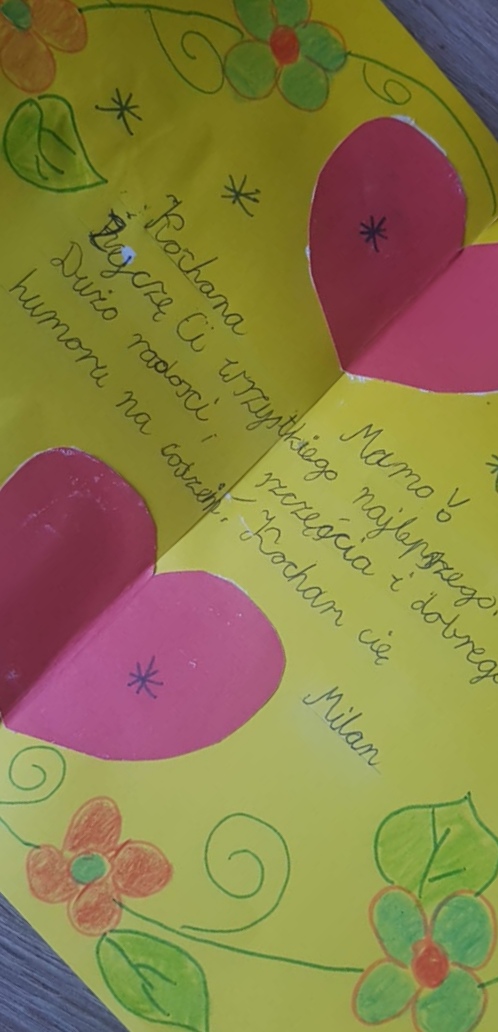 Kochana Mamo!
Życzę Ci wszystkiego najlepszego,
Dużo radości, szczęścia i dobrego
humoru na codzień. Kocham cię
Milan